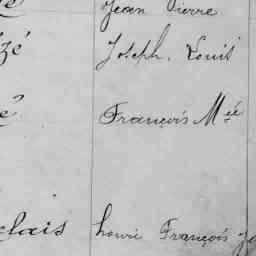 Jean Pierre
zé Joseph. Louis
é François Mcé
clais henri François